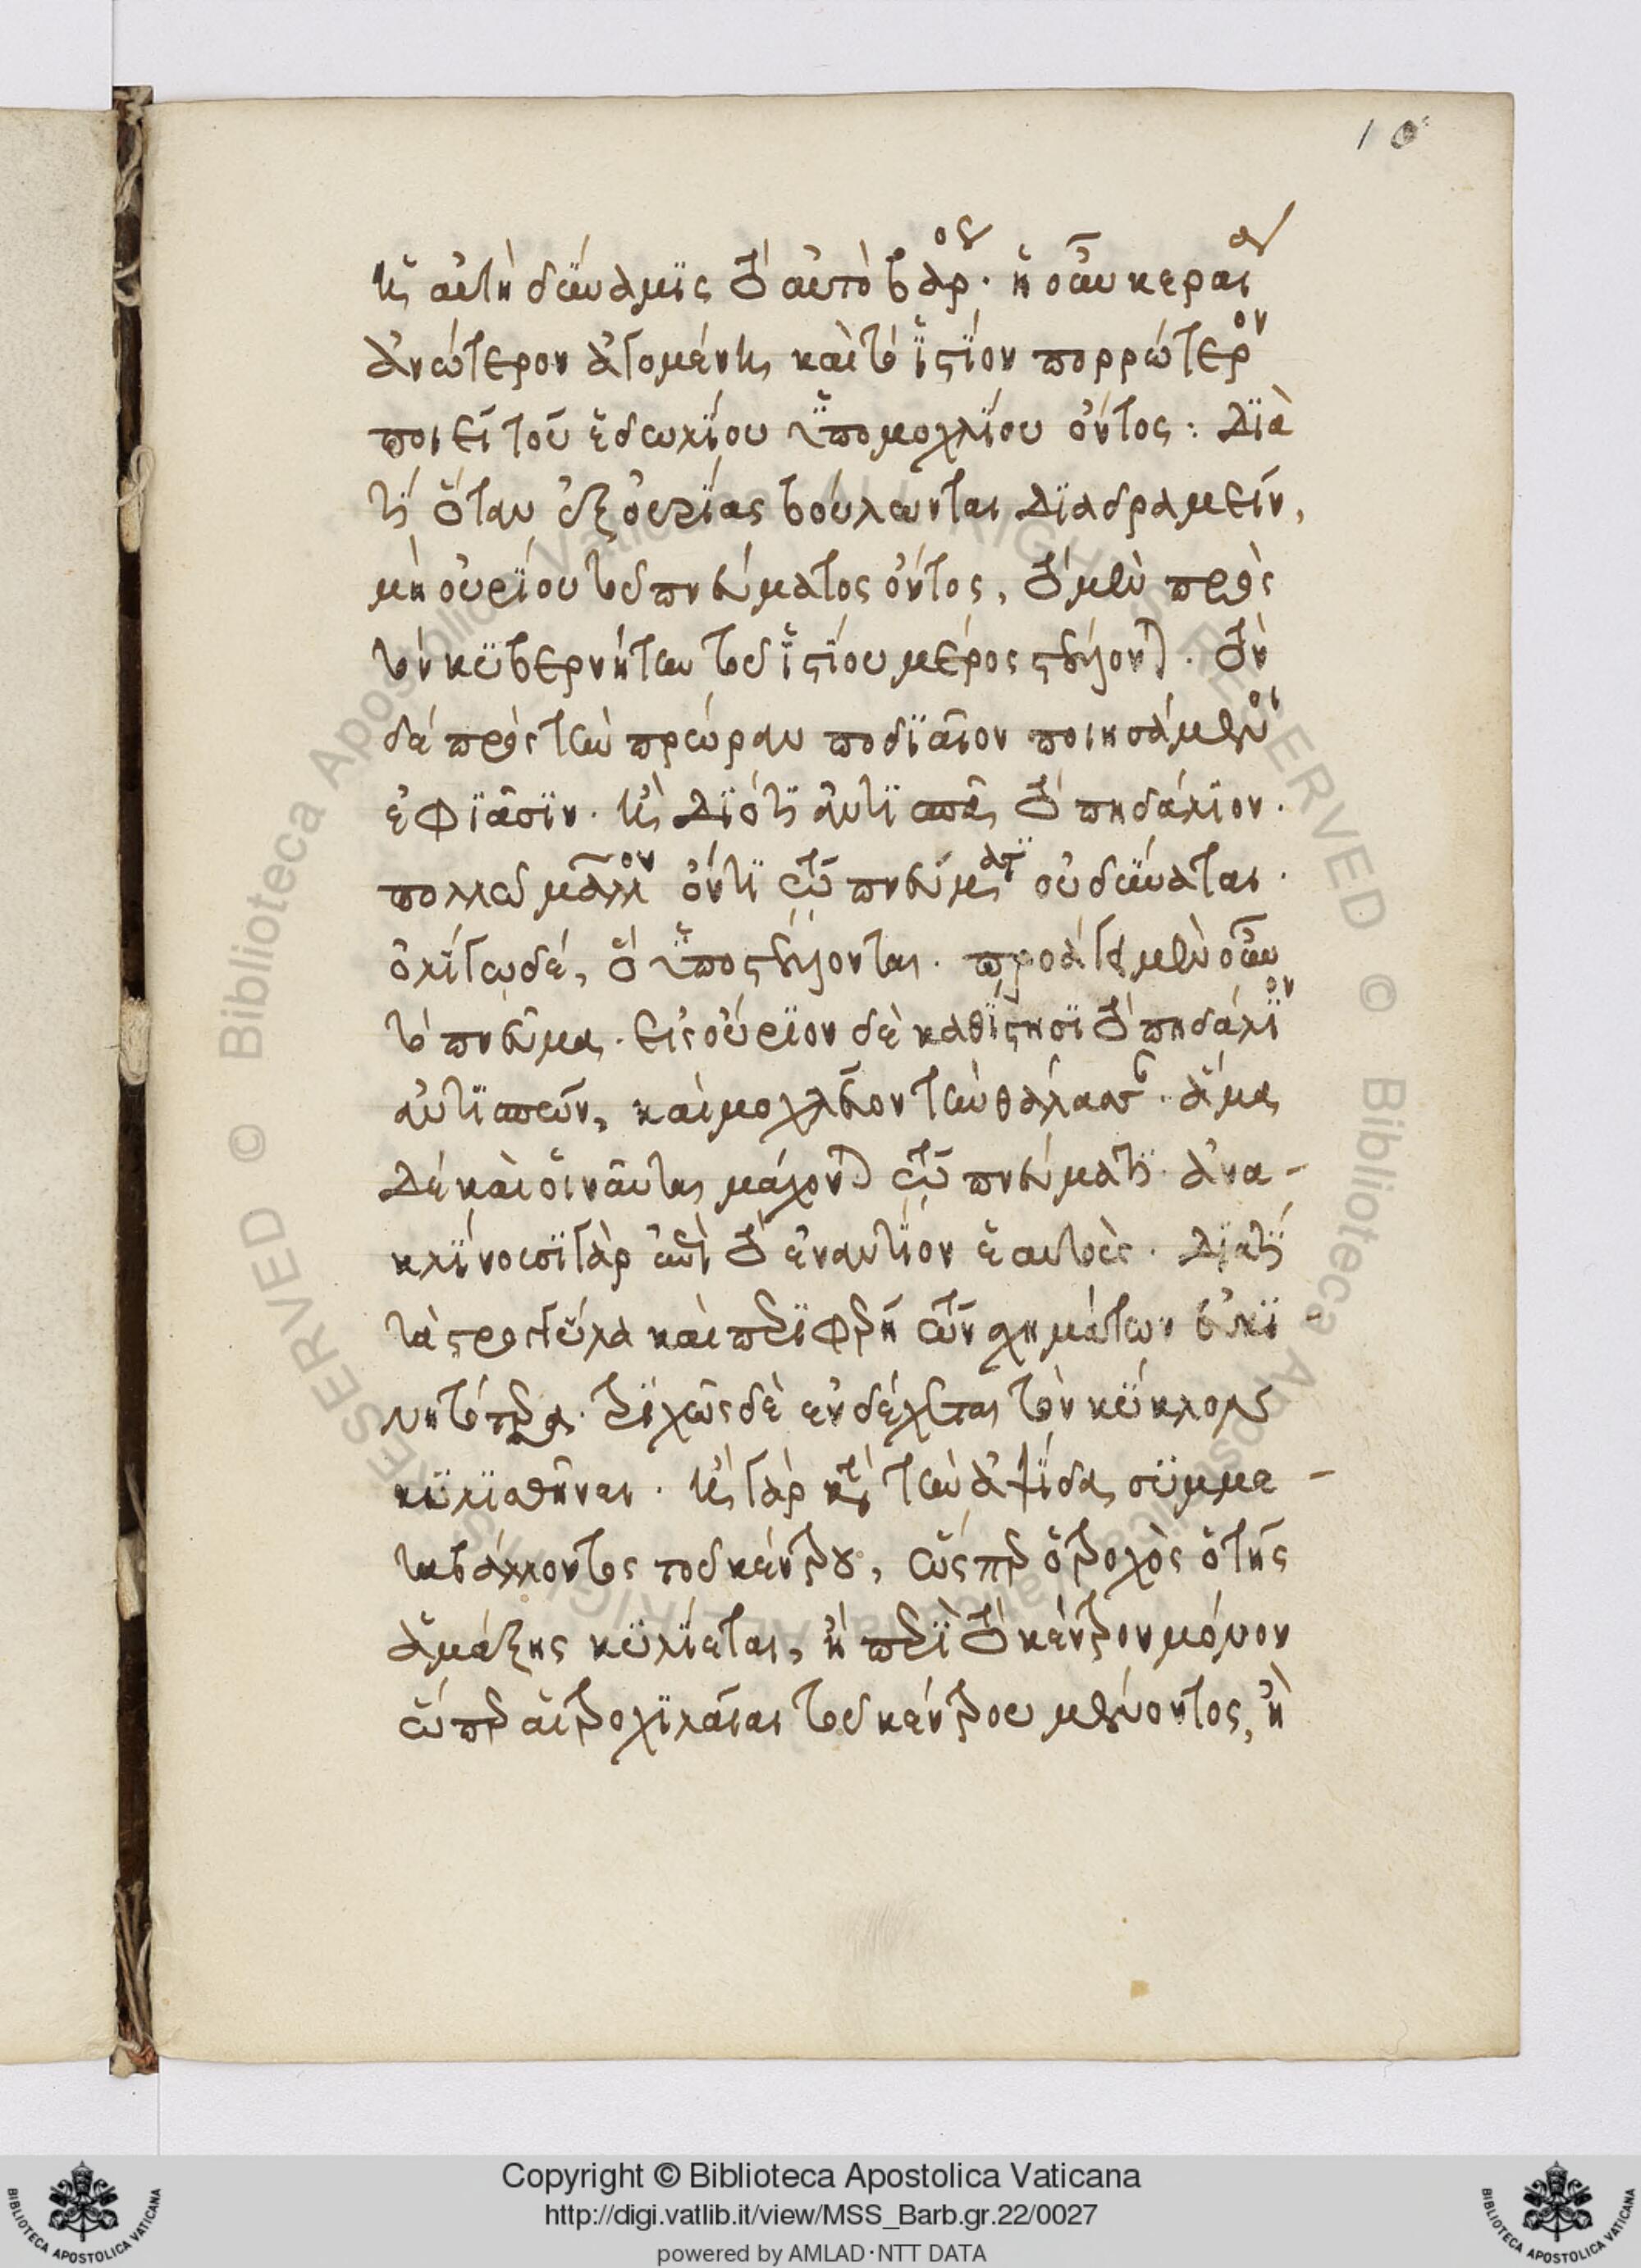 10
ἡ αὐτὴ δύναμις τὸ αὐτὸ βάρος. ἡ οὖν κεραία
ἀνώτερον ἀγομένη, καὶ τὸ ἱστίον πορρώτερον
ποιεῖ τοῦ ἑδωλίου ὑπομοχλίου ὄντος: Διὰ
τί ὅταν ἐξ οὐρίας βούλωνται διαδραμεῖν,
μὴ οὐρίου τοῦ πνεύματος ὄντος, τὸ μὲν πρὸς
τὸν κυβερνήτην τοῦ ἱστίου μέρος στέλλονται. τὸ
δὲ πρὸς τὴν πρώραν ποδιαῖον ποιησάμενοι
ἐφιᾶσιν. ἢ διότι ἀντισπᾶν τὸ πηδάλιον.
πολλῷ μᾶλλον ὄντι τῷ πνεύματι οὐ δύναται.
ὀλίγῳ δέ, ὃ ὑποστέλλονται. προάγει μὲν οὖν
τὸ πνεῦμα. εἰς οὔριον δὲ καθίστησι τὸ πηδάλιον
ἀντισπῶν, καὶ μοχλεῦον τὴν θάλασσαν. ἅμα
δὲ καὶ οἱ ναῦται μάχονται τῷ πνεύματι. ἀνα-
κλίνουσι γὰρ ἐπὶ τὸ ἐναντίον ἑαυτοὺς. Διατί
τὰ στρογγύλα καὶ περιφερῆ τῶν σχημάτων εὐκι-
νητότερα. τριχῶς δὲ ἐνδέχεται τὸν κύκλον
κυλισθῆναι. ἢ γὰρ κατὰ τὴν ἀψίδα, συμμε-
ταβάλλοντος τοῦ κέντρου, ὥσπερ ὁ τροχὸς ὁ τῆς
ἁμάξης κυλίεται, ἢ περὶ τὸ κέντρον μόνον
ὥσπερ αἱ τροχιλαῖαι τοῦ κέντρου μένοντος, ἢ
Copyright © Biblioteca Apostolica Vaticana
http://digi.vatlib.it/view/MSS_Barb.gr.22/0027
powered by AMLAD·NTT DATA